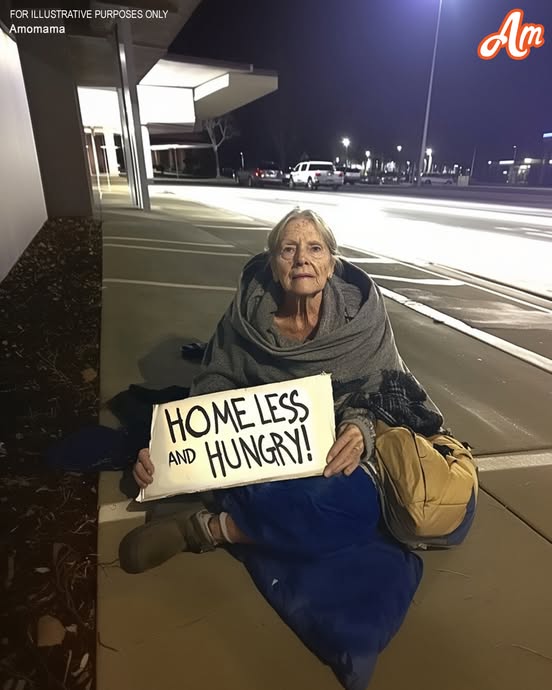 FOR ILLUSTRATIVE PURPOSES ONLY
Amomama
Am
HOMELESS
AND HUNGRY!